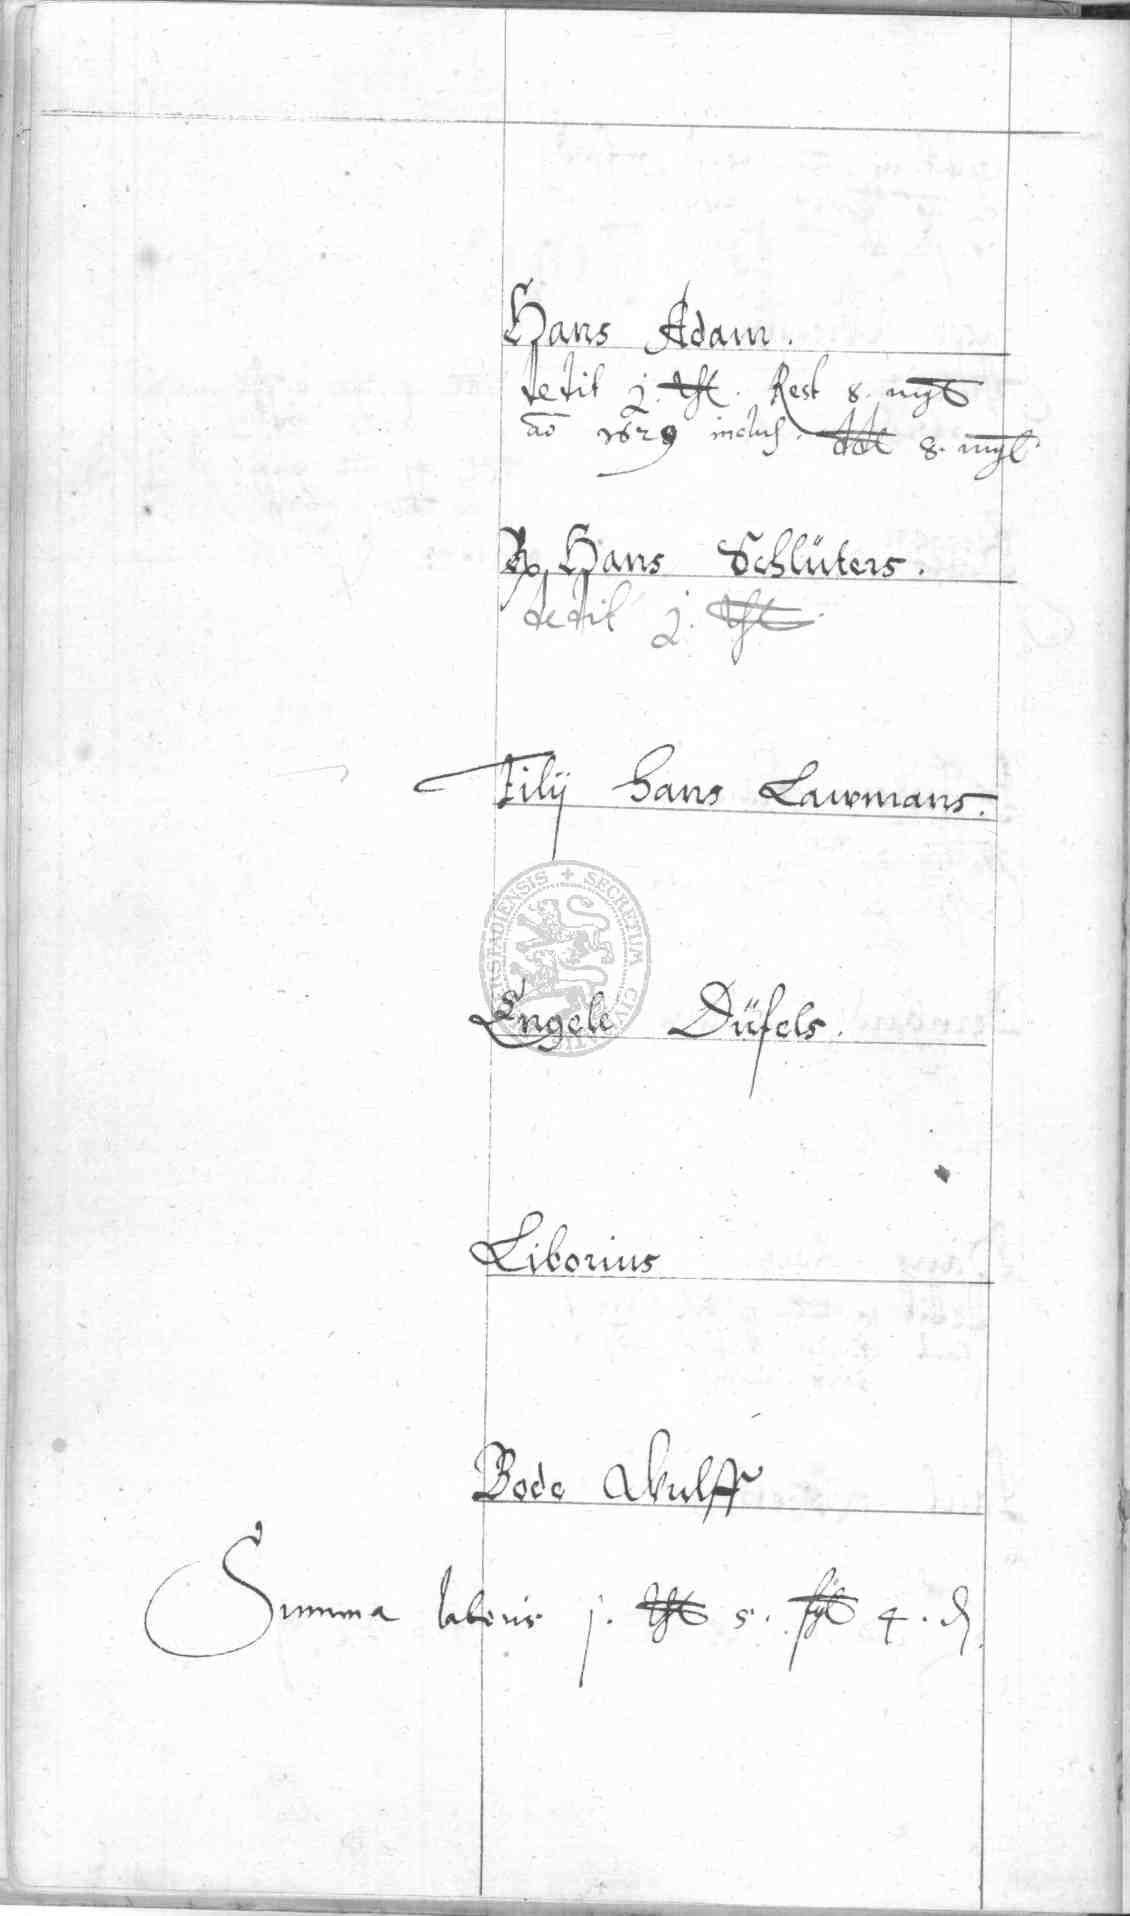 Hans Adam.
dedit j. thl. Rest 8. mgl
ao 1629 inclus. ddt 8. mgl
Hans Schlüters.
dedit j. thl.
Filij Hans Lawmans.
SECRETUM CIVI
Engele Düfels.
Liborius
Bodo Wulff
Summa lateris j. thl 5. ßl 4. d